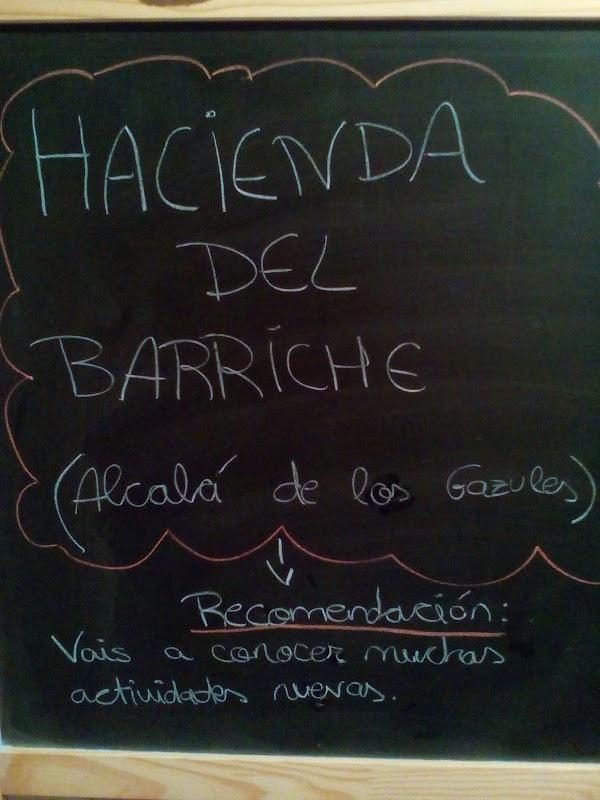 HACIENDA
DEL
BARRICHE
(Alcalá de los Gazules)
Recomendación:
Vais a conocer muchas
actividades nuevas.